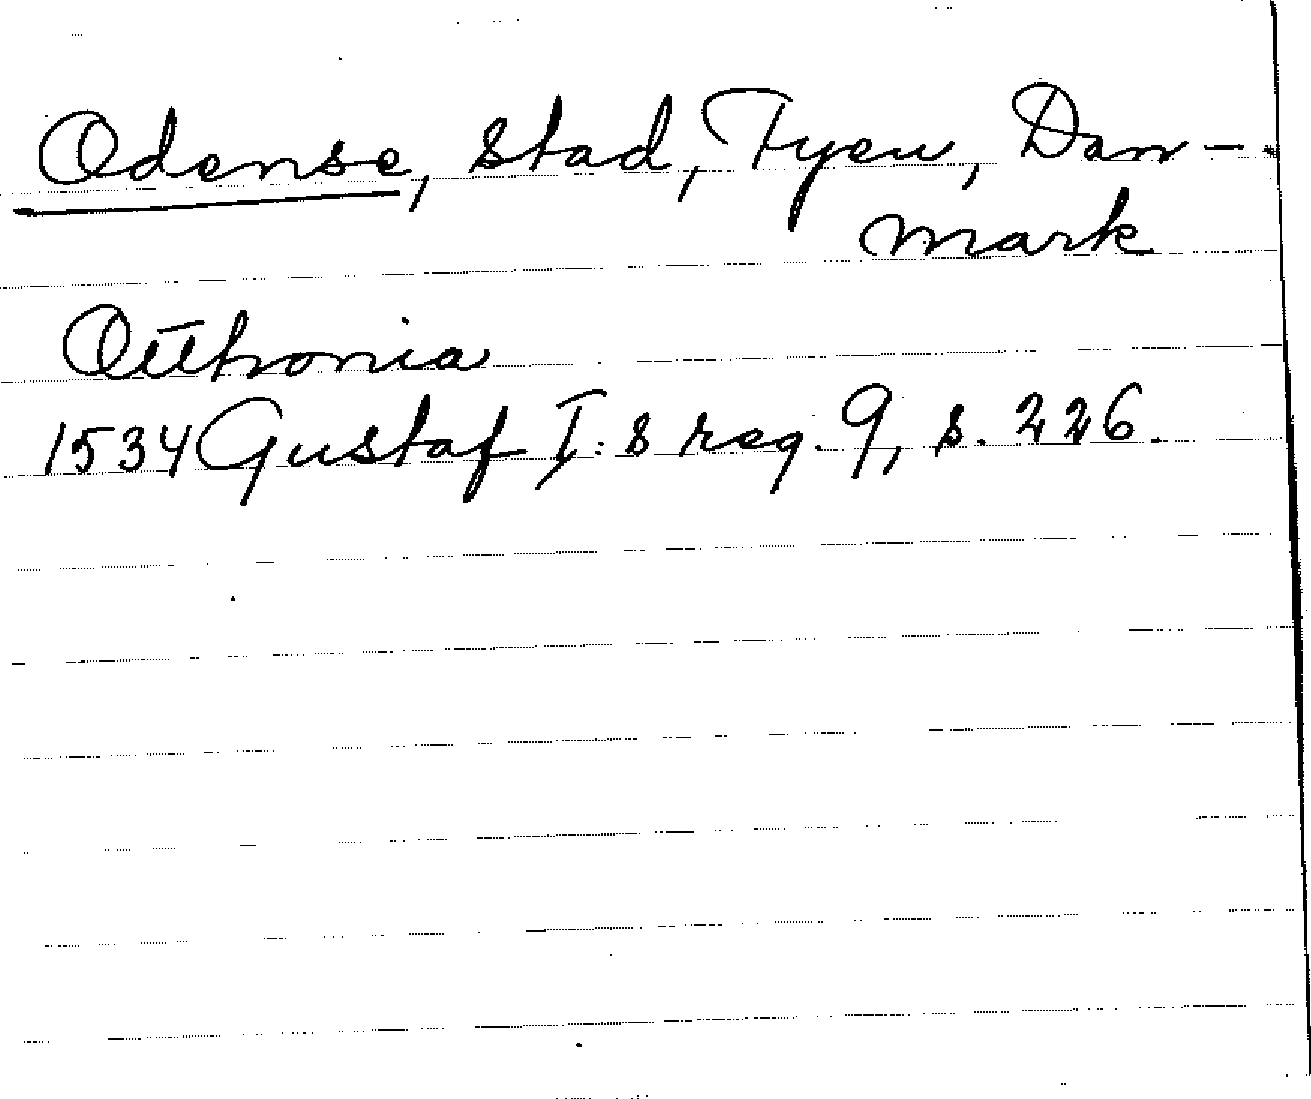 Odense, stad, Fyen, Dan-
mark
Otthonia
1534 Gustaf I:s reg. 9, s. 226.